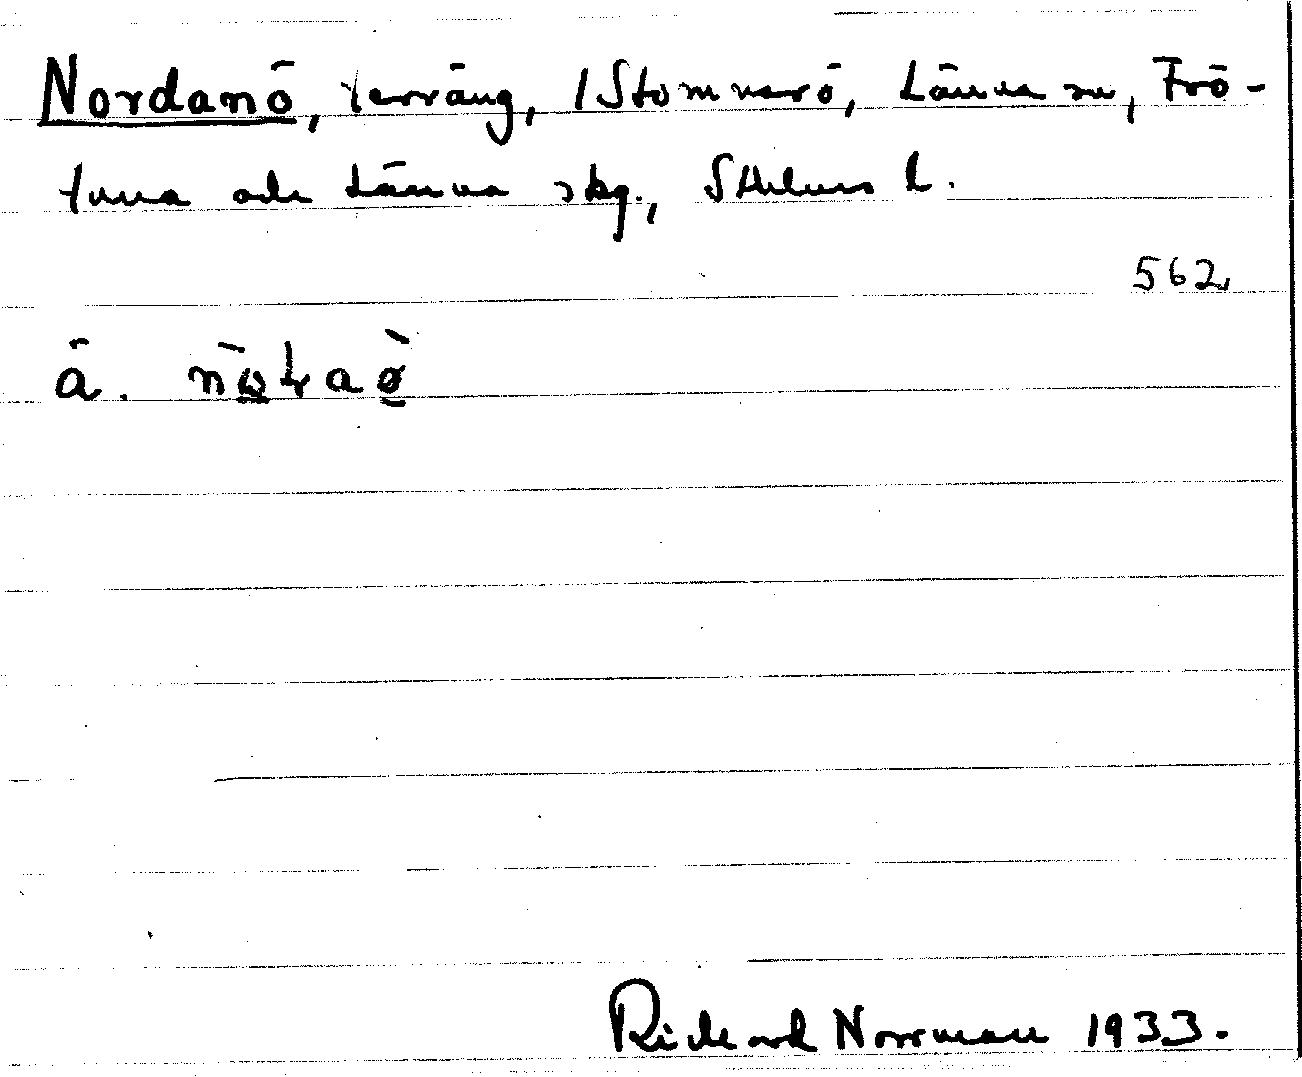 Nordanö, terräng, /Stomnarö, Länna sn, Frö-
tuna och Länna skg., Sthlms l.
562
å. nòraø̀
Richard Norrman 1933.